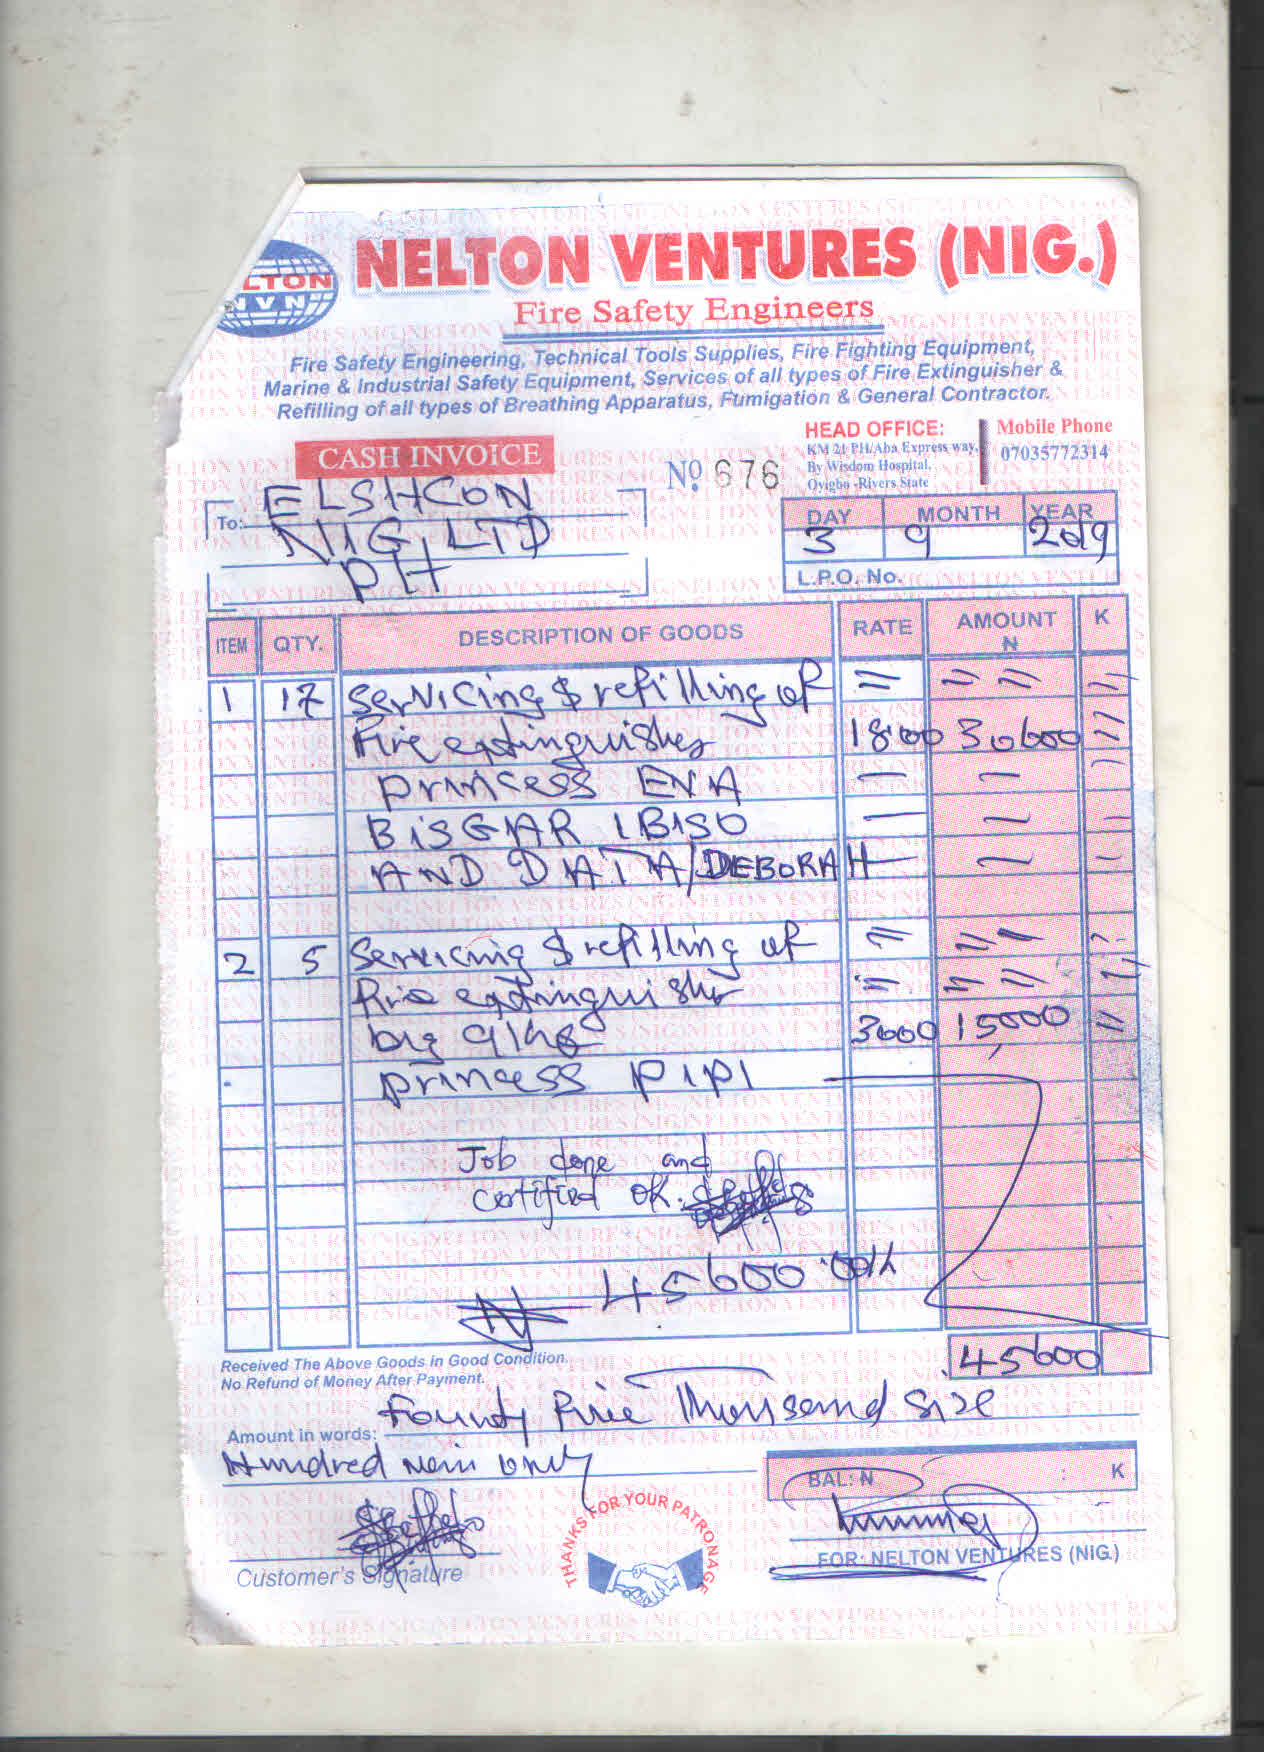 LTON
NVN
NELTON VENTURES (NIG.)
Fire Safety Engineers
Fire Safety Engineering, Technical Tools Supplies, Fire Fighting Equipment,
Marine & Industrial Safety Equipment, Services of all types of Fire Extinguisher &
Refilling of all types of Breathing Apparatus, Fumigation & General Contractor.
CASH INVOICE
No. 676
HEAD OFFICE:
KM 21 PH/Aba Express way,
By Wisdom Hospital,
Oyigbo -Rivers State
Mobile Phone
07035772314
To: ELSHCON
NIG LTD
PH
DAY MONTH YEAR
3 9 2019
L.P.O. No.
ITEM QTY. DESCRIPTION OF GOODS RATE AMOUNT N K
1 17 Servicing & refilling of = = = =
Fire extinguisher 1800 30600 =
princess ENA — — —
BISGAR IBISO — — —
AND DATA/DEBORAH — — —
2 5 Servicing & refilling of = = = =
fire extinguisher = = = =
big 9kg 3000 15000 =
princess PIPI
Job done and
certified ok.
N 45600.00k
45600
Received The Above Goods in Good Condition.
No Refund of Money After Payment.
Amount in words: Fourty Five Thousand Six
Hundred only
BAL: N : K
Customer's Signature
THANKS FOR YOUR PATRONAGE
FOR: NELTON VENTURES (NIG.)